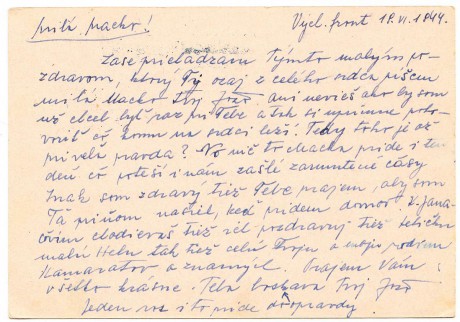 Milá Macko! Vých. front 18.VI.1944.
Zase prichádzam Týmto malým po-
zdravom, ktorý Ty ozaj z celého srdca píšem
milá Macko Tvoj Jozo. ani nevieš ako by som
už chcel byť raz pri Tebe a tak si úprimne poho-
voriť čo komu na srdci leží. Tedy toho je až
priveľa pravda? No nič to Macka príde i ten
deň čo poteší i nám zašlé zarmutené časy
Inak som zdravý tiež Tebe prajem, aby som
Ťa pritom našiel, keď prídem domov.
tiež
malú Helu tak tiež celú Tvoju a moju rodinu
Kamarátov a známych. Prajem Vám
všetko krásne. Teba Tvoj Jozo
Jeden raz i to príde dopravdy.